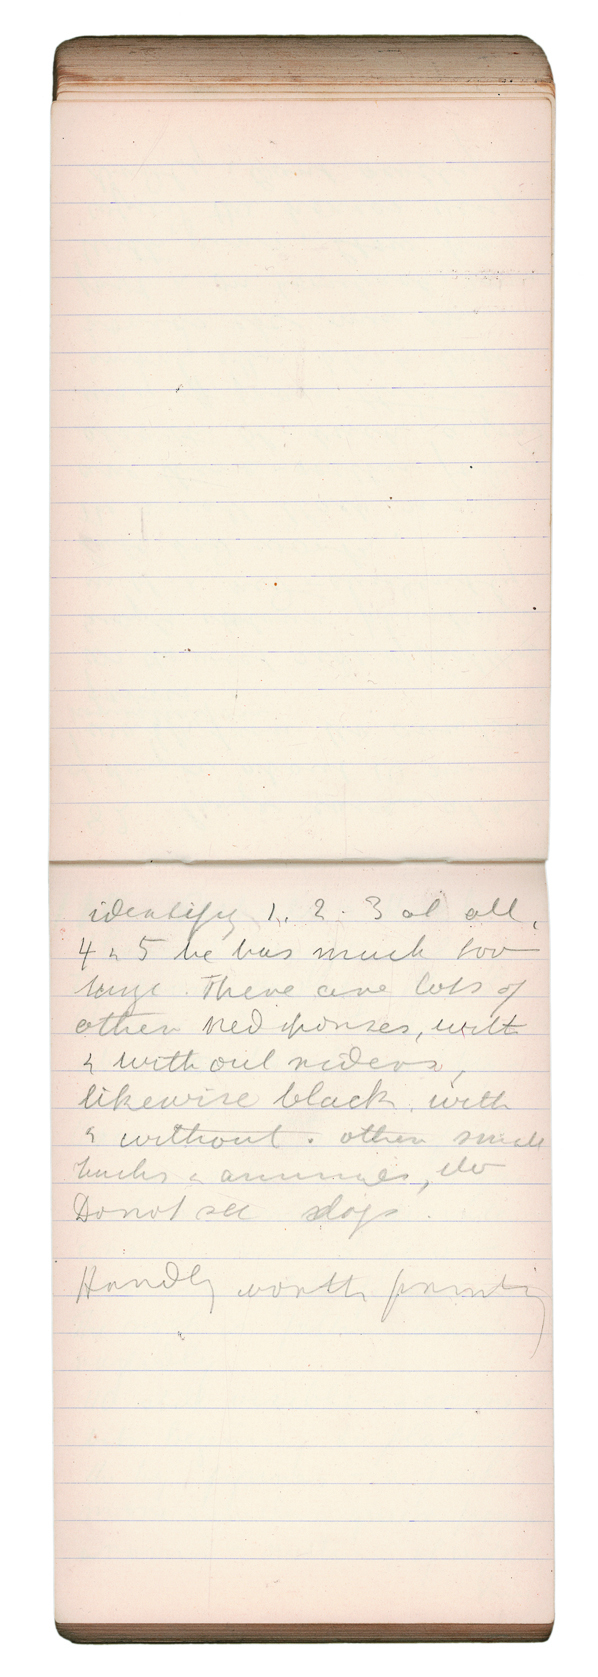 identify 1. 2. 3 at all,
4 & 5 he has much too
large. There are lots of
other red horses, with
& without riders,
likewise black, with
& without. other small
bucks &
Do not see dogs.
Hardly worth printing